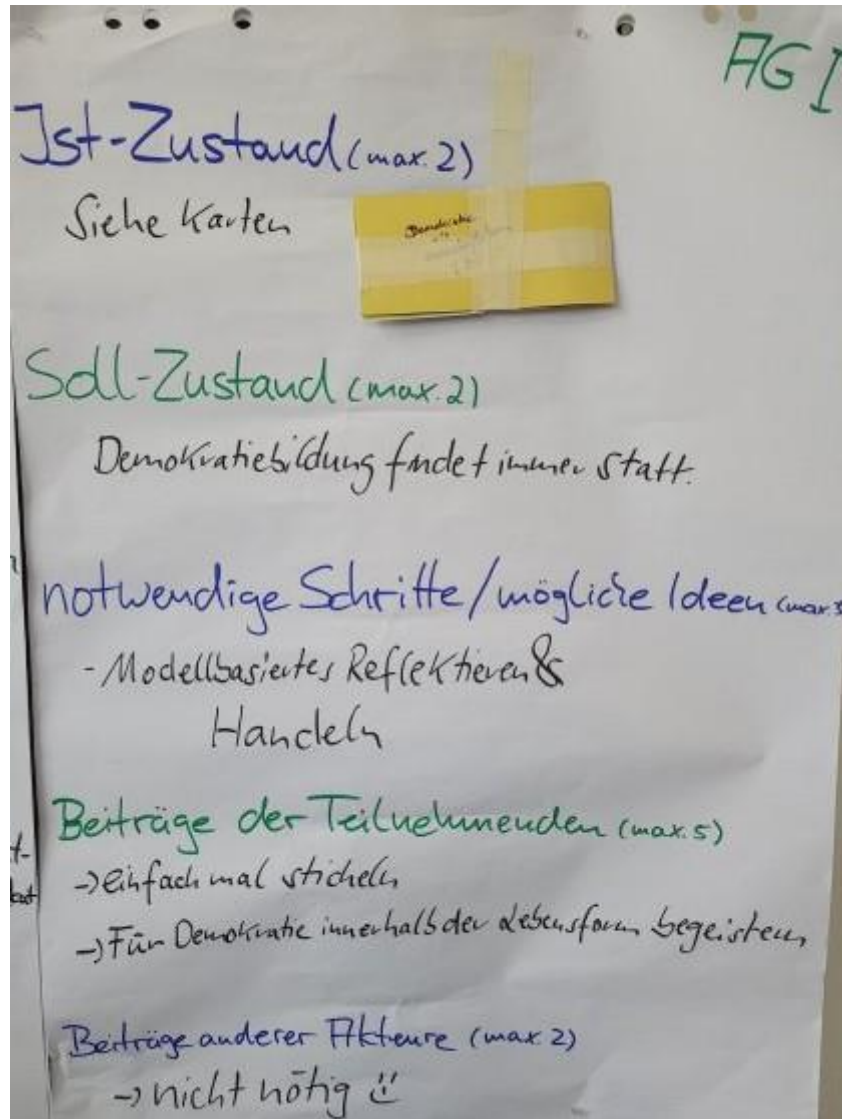 AG I
Ist-Zustand (max. 2)
Siehe Karten
Demokratie
Soll-Zustand (max. 2)
Demokratiebildung findet immer statt.
notwendige Schritte/mögliche Ideen (max.
- Modellbasiertes Reflektieren &
Handeln
Beiträge der Teilnehmenden (max. 5)
-> einfach mal sticheln
-> Für Demokratie innerhalb der Lebensform begeistern
Beiträge anderer Akteure (max. 2)
-> nicht nötig ü